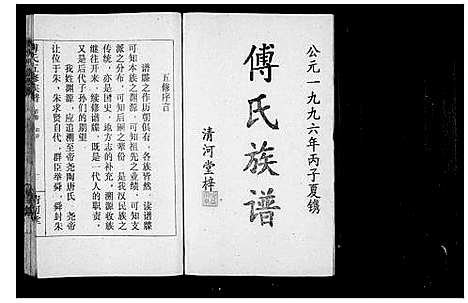 公元一九九六年丙子夏镌
傅氏族谱
清河堂梓
五修序言
谱牒之作历朝俱有，各族皆然。读谱牒
可知本族之渊源，可知祖先之业绩，可知支
派之分布，可知后嗣之辈份，是我汉民族之
传统，亦是国史、地方志的补充，溯源收族
继往开来，续修谱牒，既是一代人的职责，
又是后代子孙们的期望。
我姓渊源，应追溯至帝尧陶唐氏，尧帝
让位于朱，朱求贤自代，群臣举舜，舜封朱